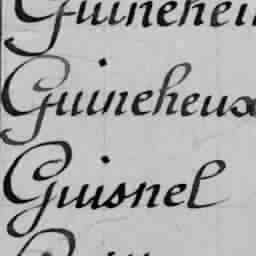 Guineheux
Guisnel